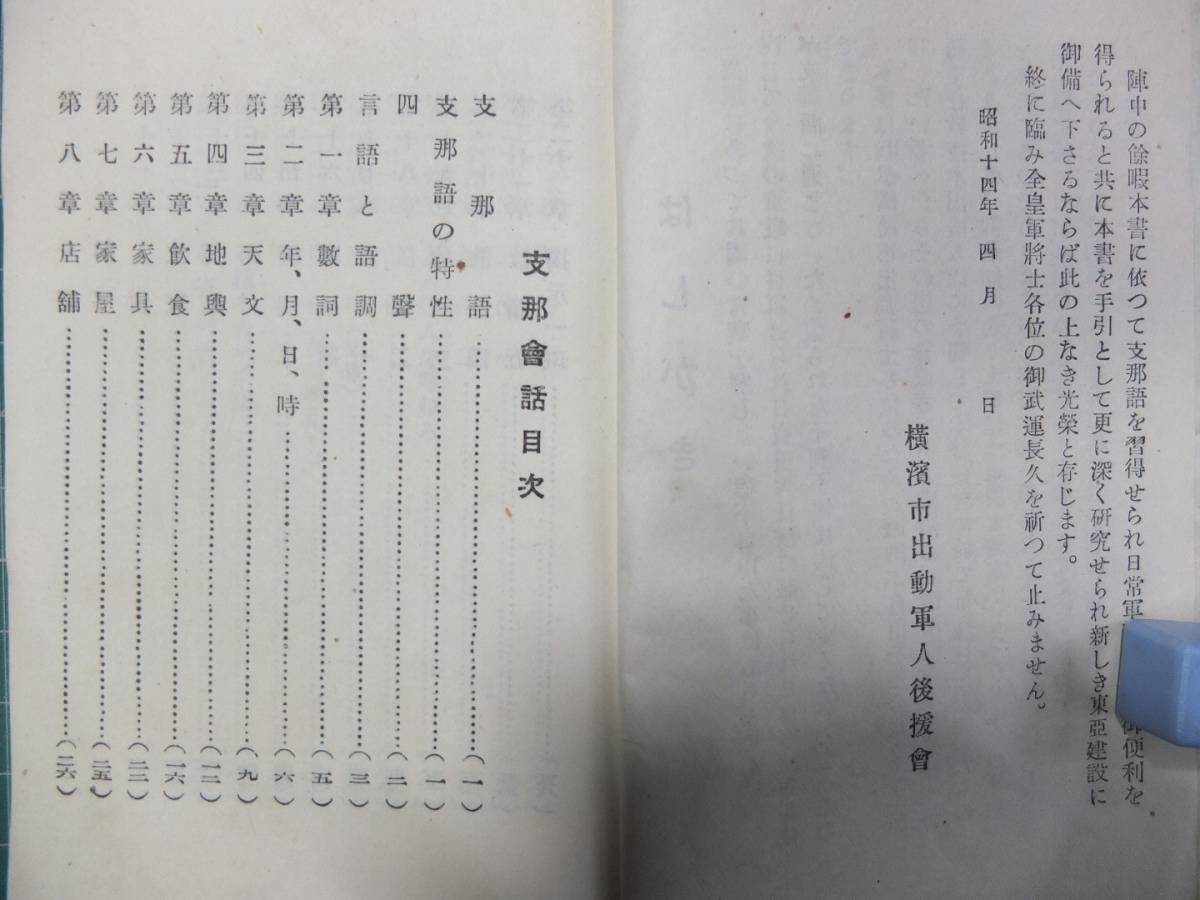 陣中の餘暇本書に依つて支那語を習得せられ日常軍 御便利を
得られると共に本書を手引として更に深く研究せられ新しき東亞建設に
御備へ下さるならば此の上なき光榮と存じます。
終に臨み全皇軍將士各位の御武運長久を祈つて止みません。
昭和十四年 四月 日
橫濱市出動軍人後援會
支那會話目次
支那語……(一)
支那語の特性……(一)
四聲……(二)
言語と語調……(三)
第一章 數詞……(五)
第二章 年、月、日、時……(六)
第三章 天文……(九)
第四章 地輿……(一二)
第五章 飮食……(一六)
第六章 家具……(二二)
第七章 家屋……(二五)
第八章 店舖……(二六)